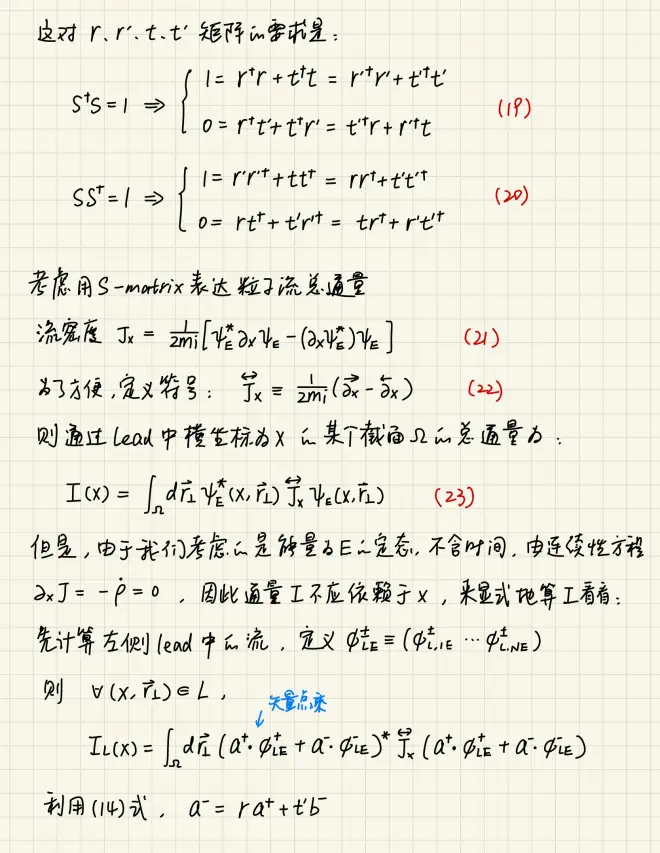 这对 r、r'、t、t' 矩阵的要求是:
S†S=1 ⇒ { 1= r†r + t†t = r'†r' + t'†t'
0= r†t' + t†r' = t'†r + r'†t (19)
SS†=1 ⇒ { 1= r'r'† + tt† = rr† + t't'†
0= rt† + t'r'† = tr† + r't'† (20)
考虑用S-matrix表达粒子流总通量
流密度 Jx = 1/2mi [ψE* ∂xψE - (∂xψE*)ψE] (21)
为了方便,定义符号: J↔x ≡ 1/2mi (∂→x - ∂←x) (22)
则通过lead中横坐标为x的某个截面Ω的总通量为:
I(x) = ∫Ω dr⃗⊥ ψE*(x, r⃗⊥) J↔x ψE(x, r⃗⊥) (23)
但是,由于我们考虑的是能量为E的定态,不含时间,由连续性方程
∂xJ = -ρ̇ = 0 ,因此通量I不应依赖于x,来显式地算I看看:
先计算左侧lead中的流,定义 ϕ±LE ≡ (ϕ±L,1E ⋯ ϕ±L,NE)
则 ∀(x, r⃗⊥)∈L ,
矢量点乘
IL(x) = ∫Ω dr⃗⊥ (a⁺·ϕ⁺LE + a⁻·ϕ⁻LE)* J↔x (a⁺·ϕ⁺LE + a⁻·ϕ⁻LE)
利用(14)式, a⁻ = ra⁺ + t'b⁻